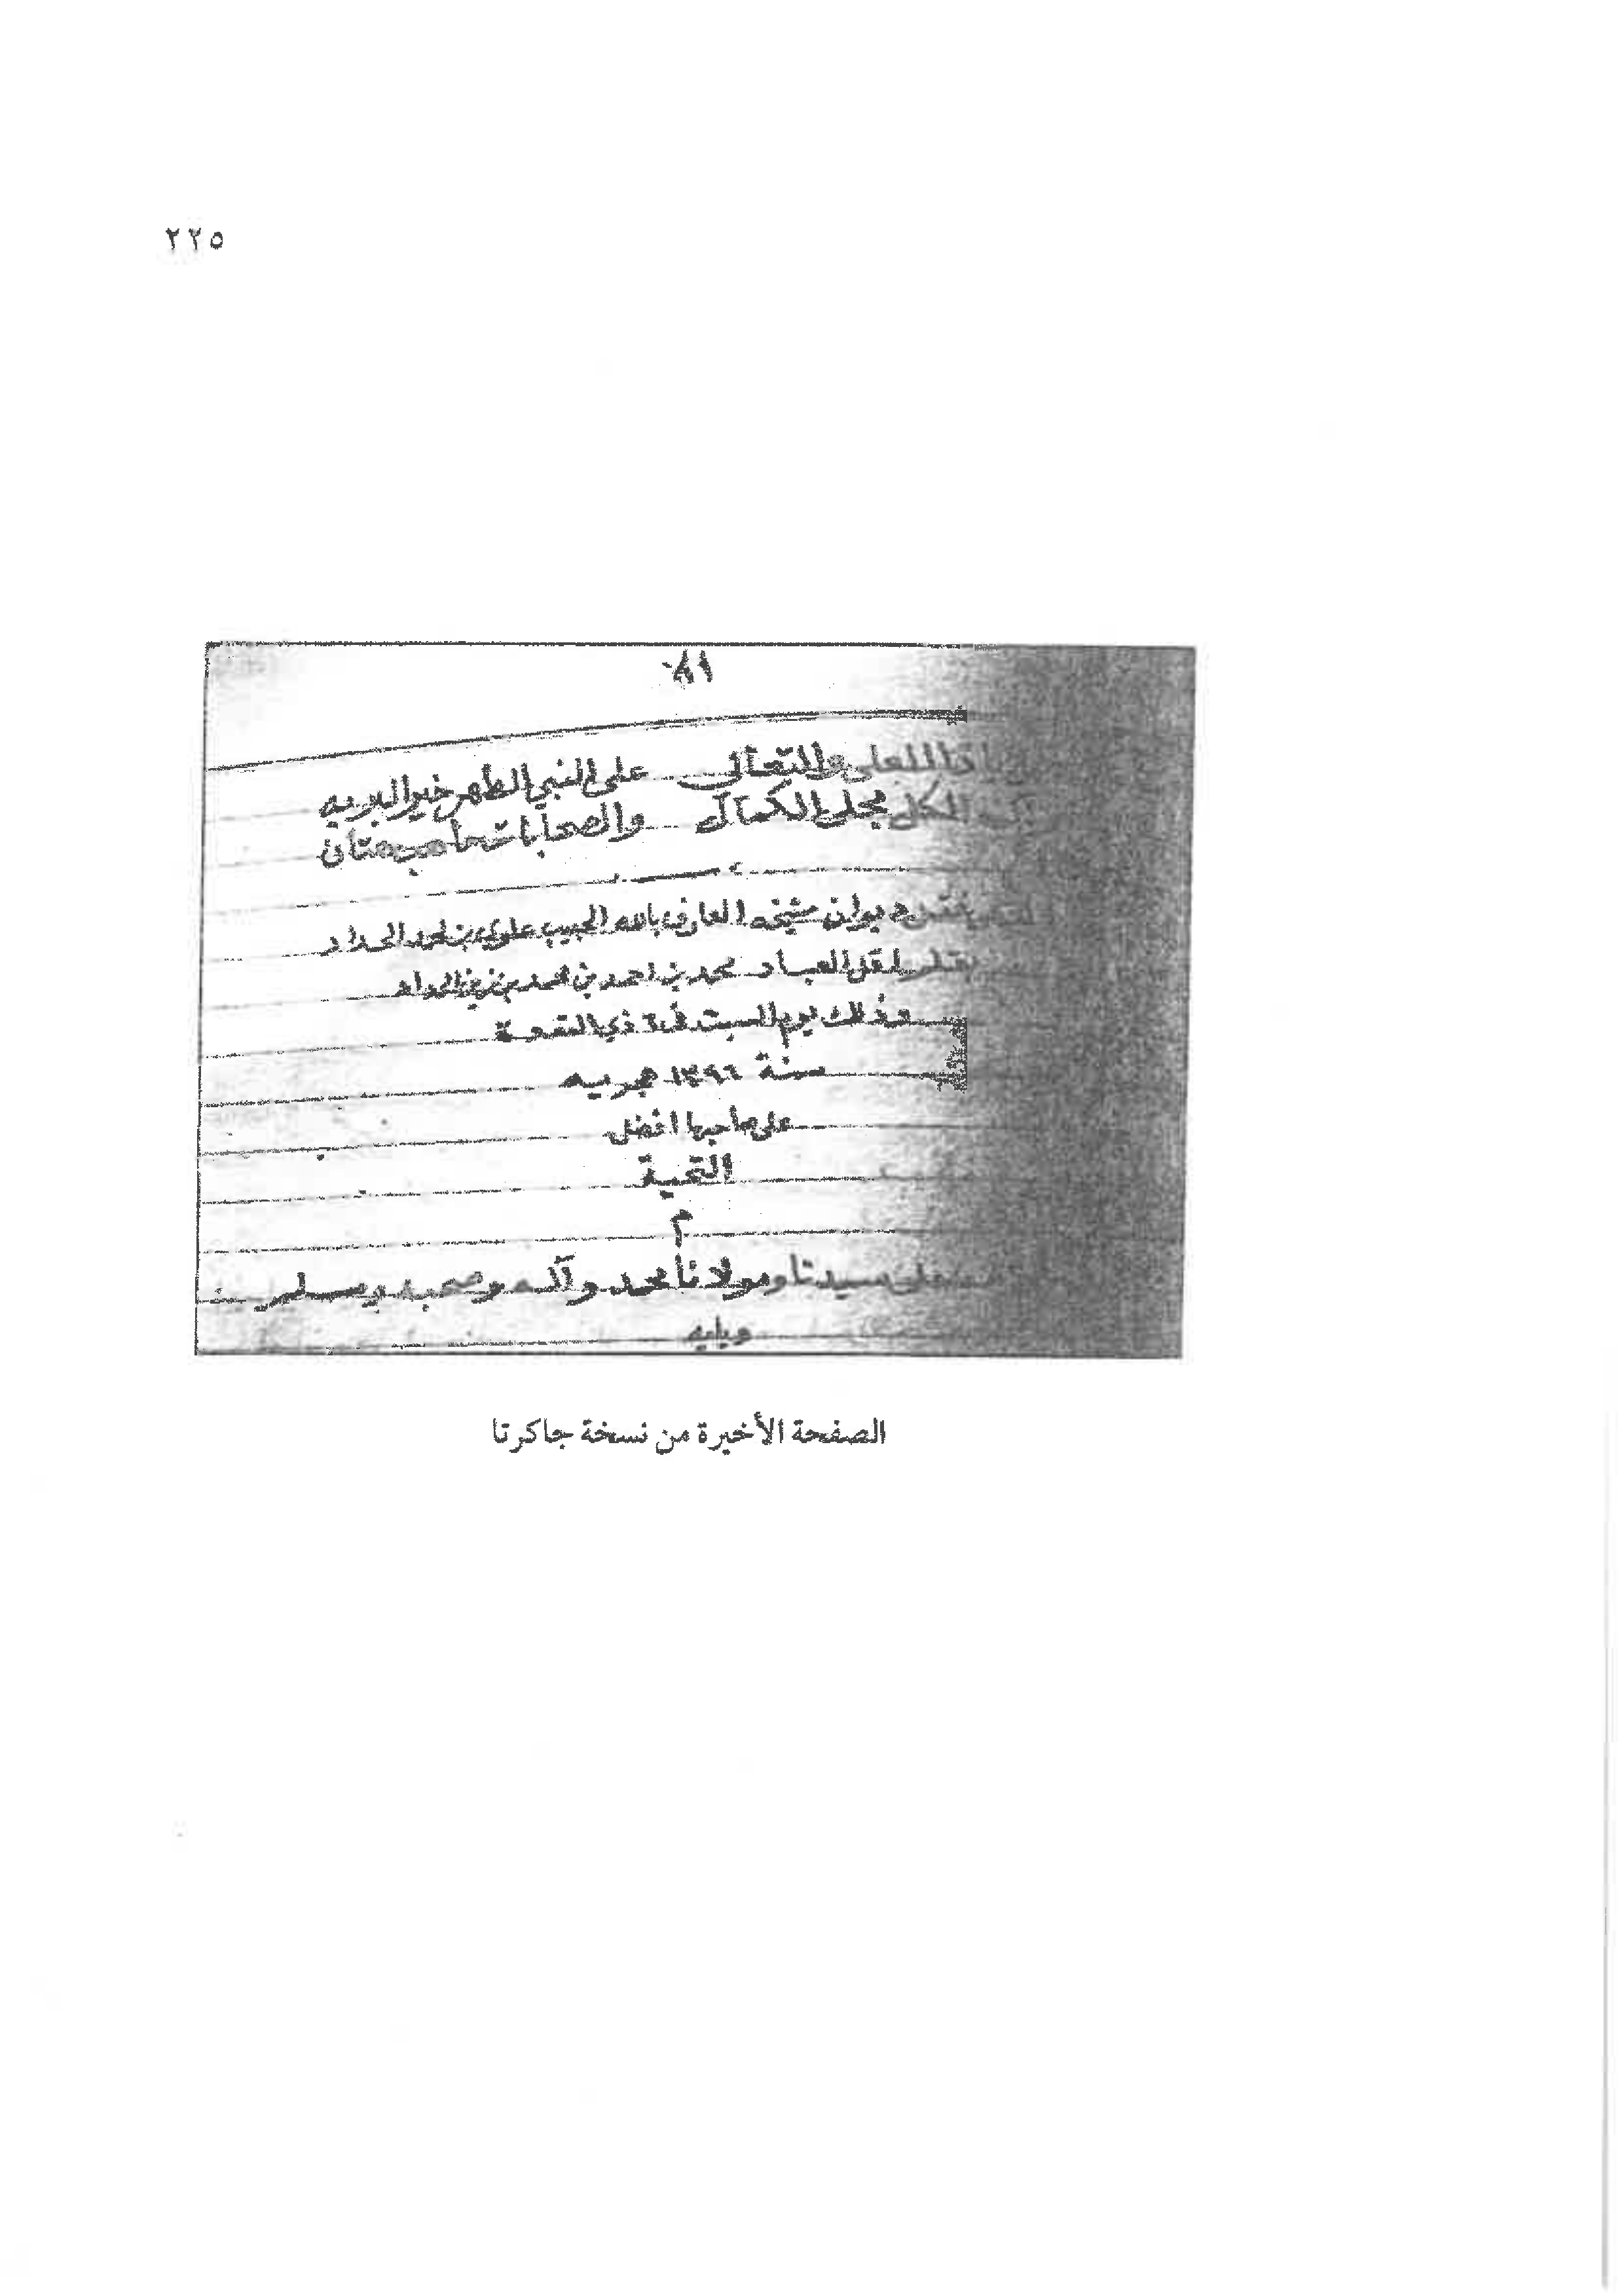 ٢٢٥
والمتعالي على النبي الطهر خير البريه
مجلى الكمال والصحابات
ديوان شيخه العارف بالله الحبيب علوي بن احمد الحداد
اقل العباد محمد بن احمد بن محمد بن زين الحداد
وذلك يوم السبت في ٦ ذي القعدة
سنة ١٣٩٦ هجريه
على صاحبها افضل
التحية
م
على سيدنا ومولانا محمد وآله وصحبه وسلم
ويليه
الصفحة الأخيرة من نسخة جاكرتا